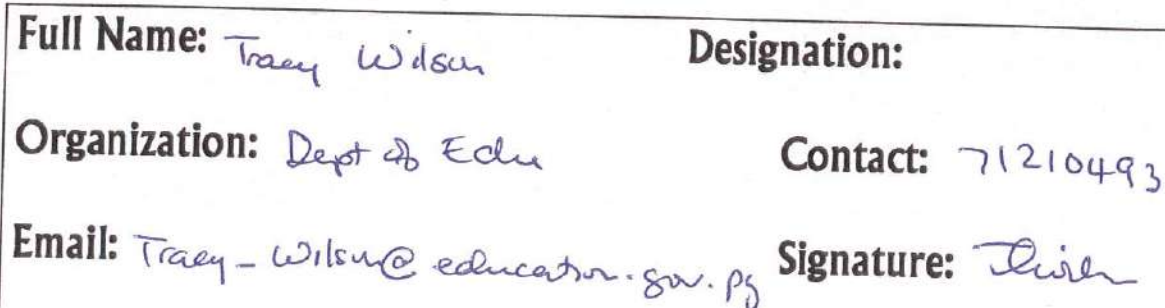 Full Name: Tracy Wilson Designation:
Organization: Dept of Edu Contact: 71210493
Email: Tracy_Wilson@education.gov.pg Signature: